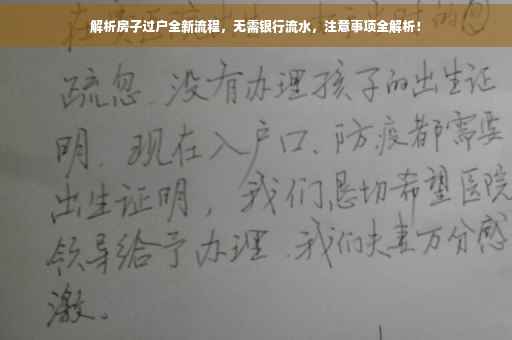 解析房子过户全新流程，无需银行流水，注意事项全解析！
疏忽、没有办理孩子的出生证
明、现在入户口、防疫都需要
出生证明，我们恳切希望医院
领导给予办理、我们夫妻万分感
激。